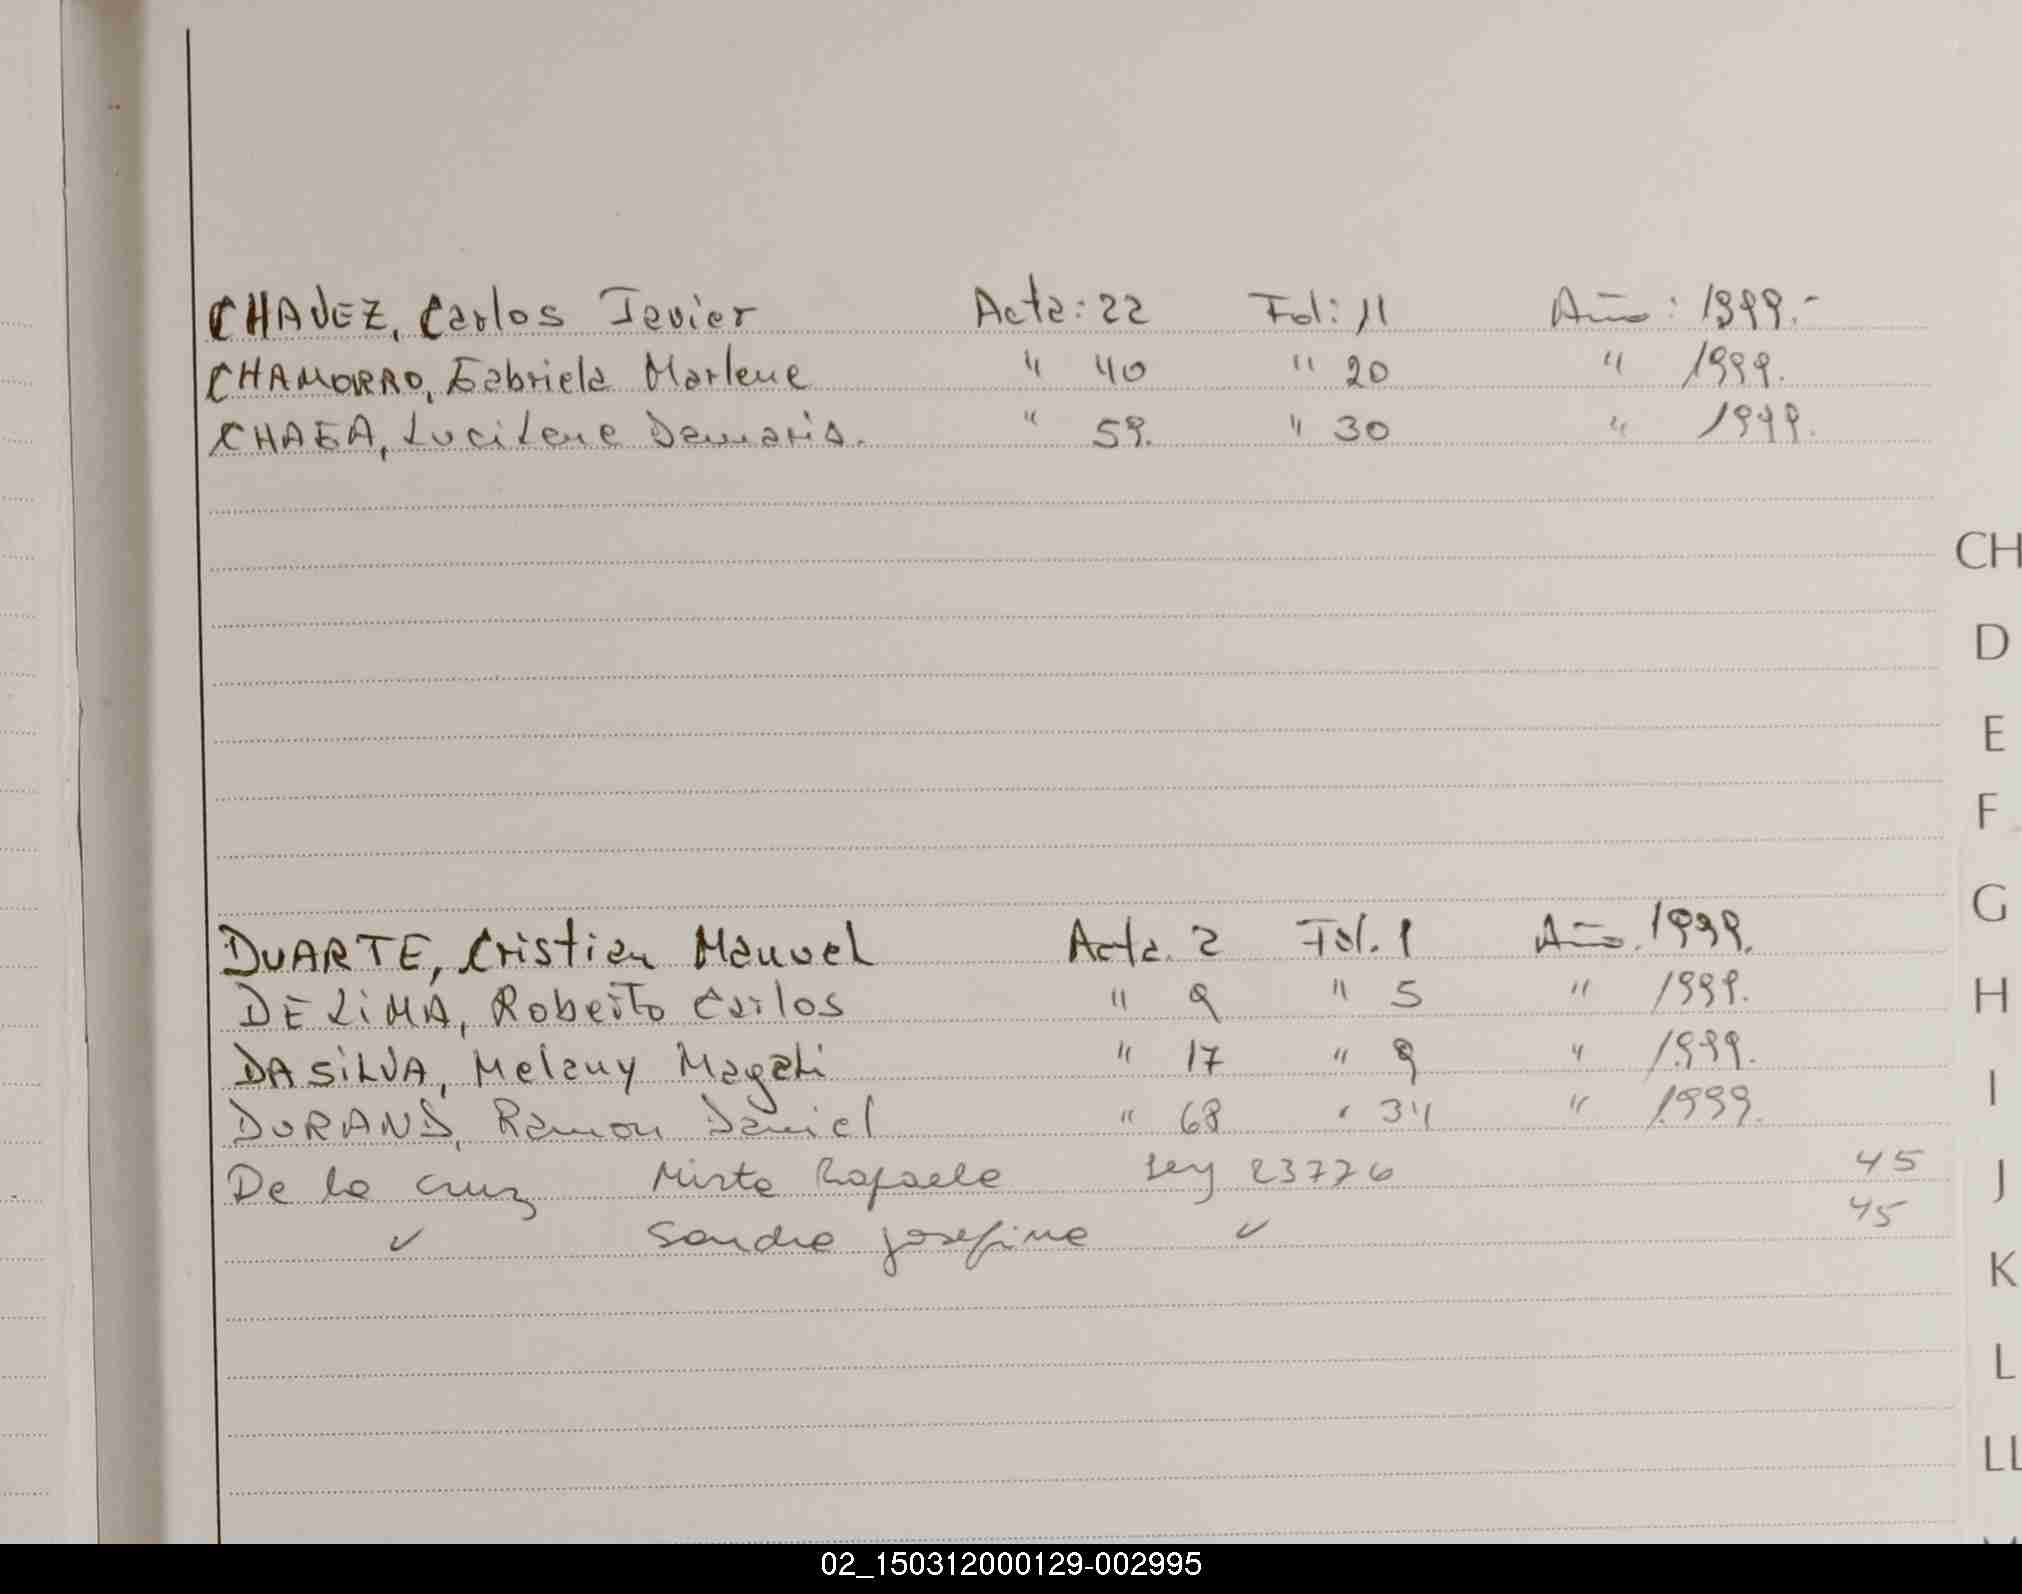 CHAVEZ, Carlos Javier Acta: 22 Fol: 11 Año: 1999.-
CHAMORRO, Gabriela Marlene " 40 " 20 " 1999.
CHAGA, Lucilene Damaris. " 59. " 30 " 1999.
CH
D
E
F
G
DUARTE, Cristian Manuel Acta. 2 Fol. 1 Año. 1999.
DE LiMA, Roberto Carlos " 9 " 5 " 1999.
H
DA SiLVA, Melany Magali " 17 " 9 " 1999.
I
DURAND, Ramon Daniel " 68 " 34 " 1999.
De la cruz Mirta Rafaela Ley 23776 45
J
✓ Sandra josefina ✓ 45
K
L
LL
02_150312000129-002995